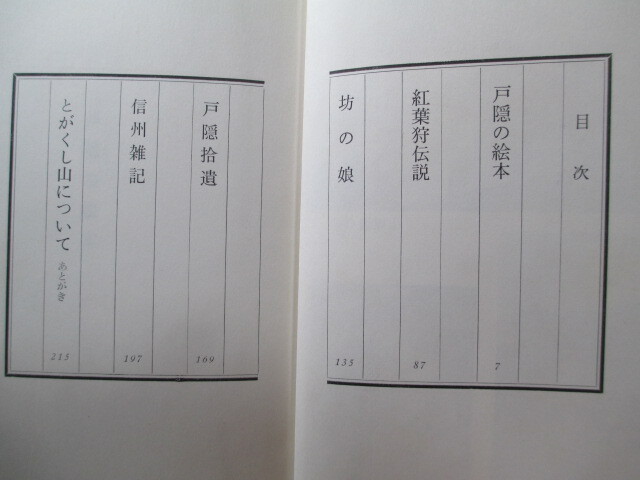 目次
戸隠の絵本
7
紅葉狩伝説
87
坊の娘
135
戸隠拾遺
169
信州雑記
197
とがくし山について あとがき
215